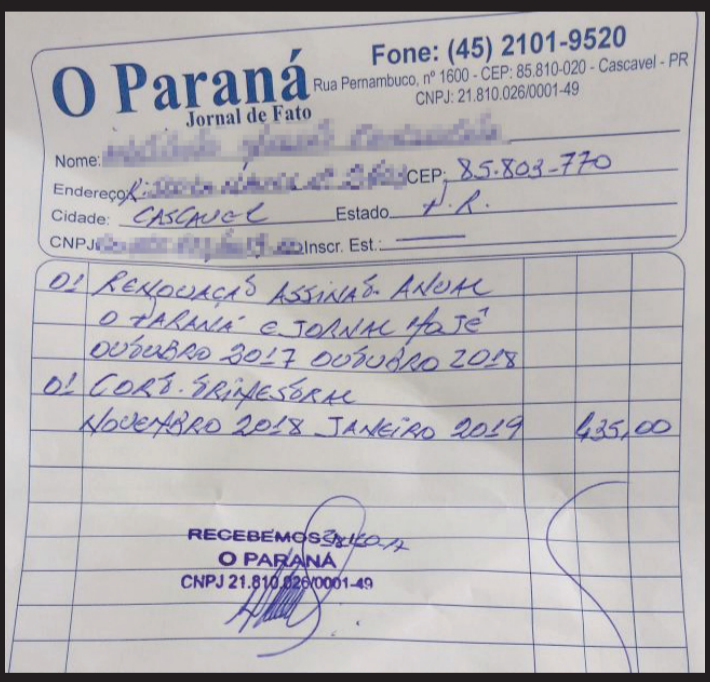 O Paraná
Jornal de Fato
Fone: (45) 2101-9520
Rua Pernambuco, nº 1600 - CEP: 85.810-020 - Cascavel - PR
CNPJ: 21.810.026/0001-49
Nome:
Endereço: CEP: 85.803-770
Cidade: CASCAVEL Estado P.R.
CNPJ Inscr. Est.:
01 RENOVAÇÃO ASSINAT. ANUAL
O PARANÁ E JORNAL HOJE
OUTUBRO 2017 OUTUBRO 2018
01 CORT. TRIMESTRAL
NOVEMBRO 2018 JANEIRO 2019 435,00
RECEBEMOS
O PARANÁ
CNPJ 21.810.026/0001-49